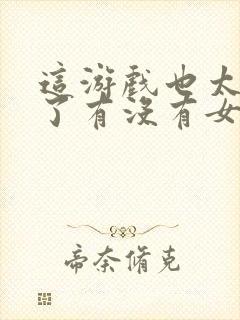 這游戲也太
了有沒有女
帝奈脩克